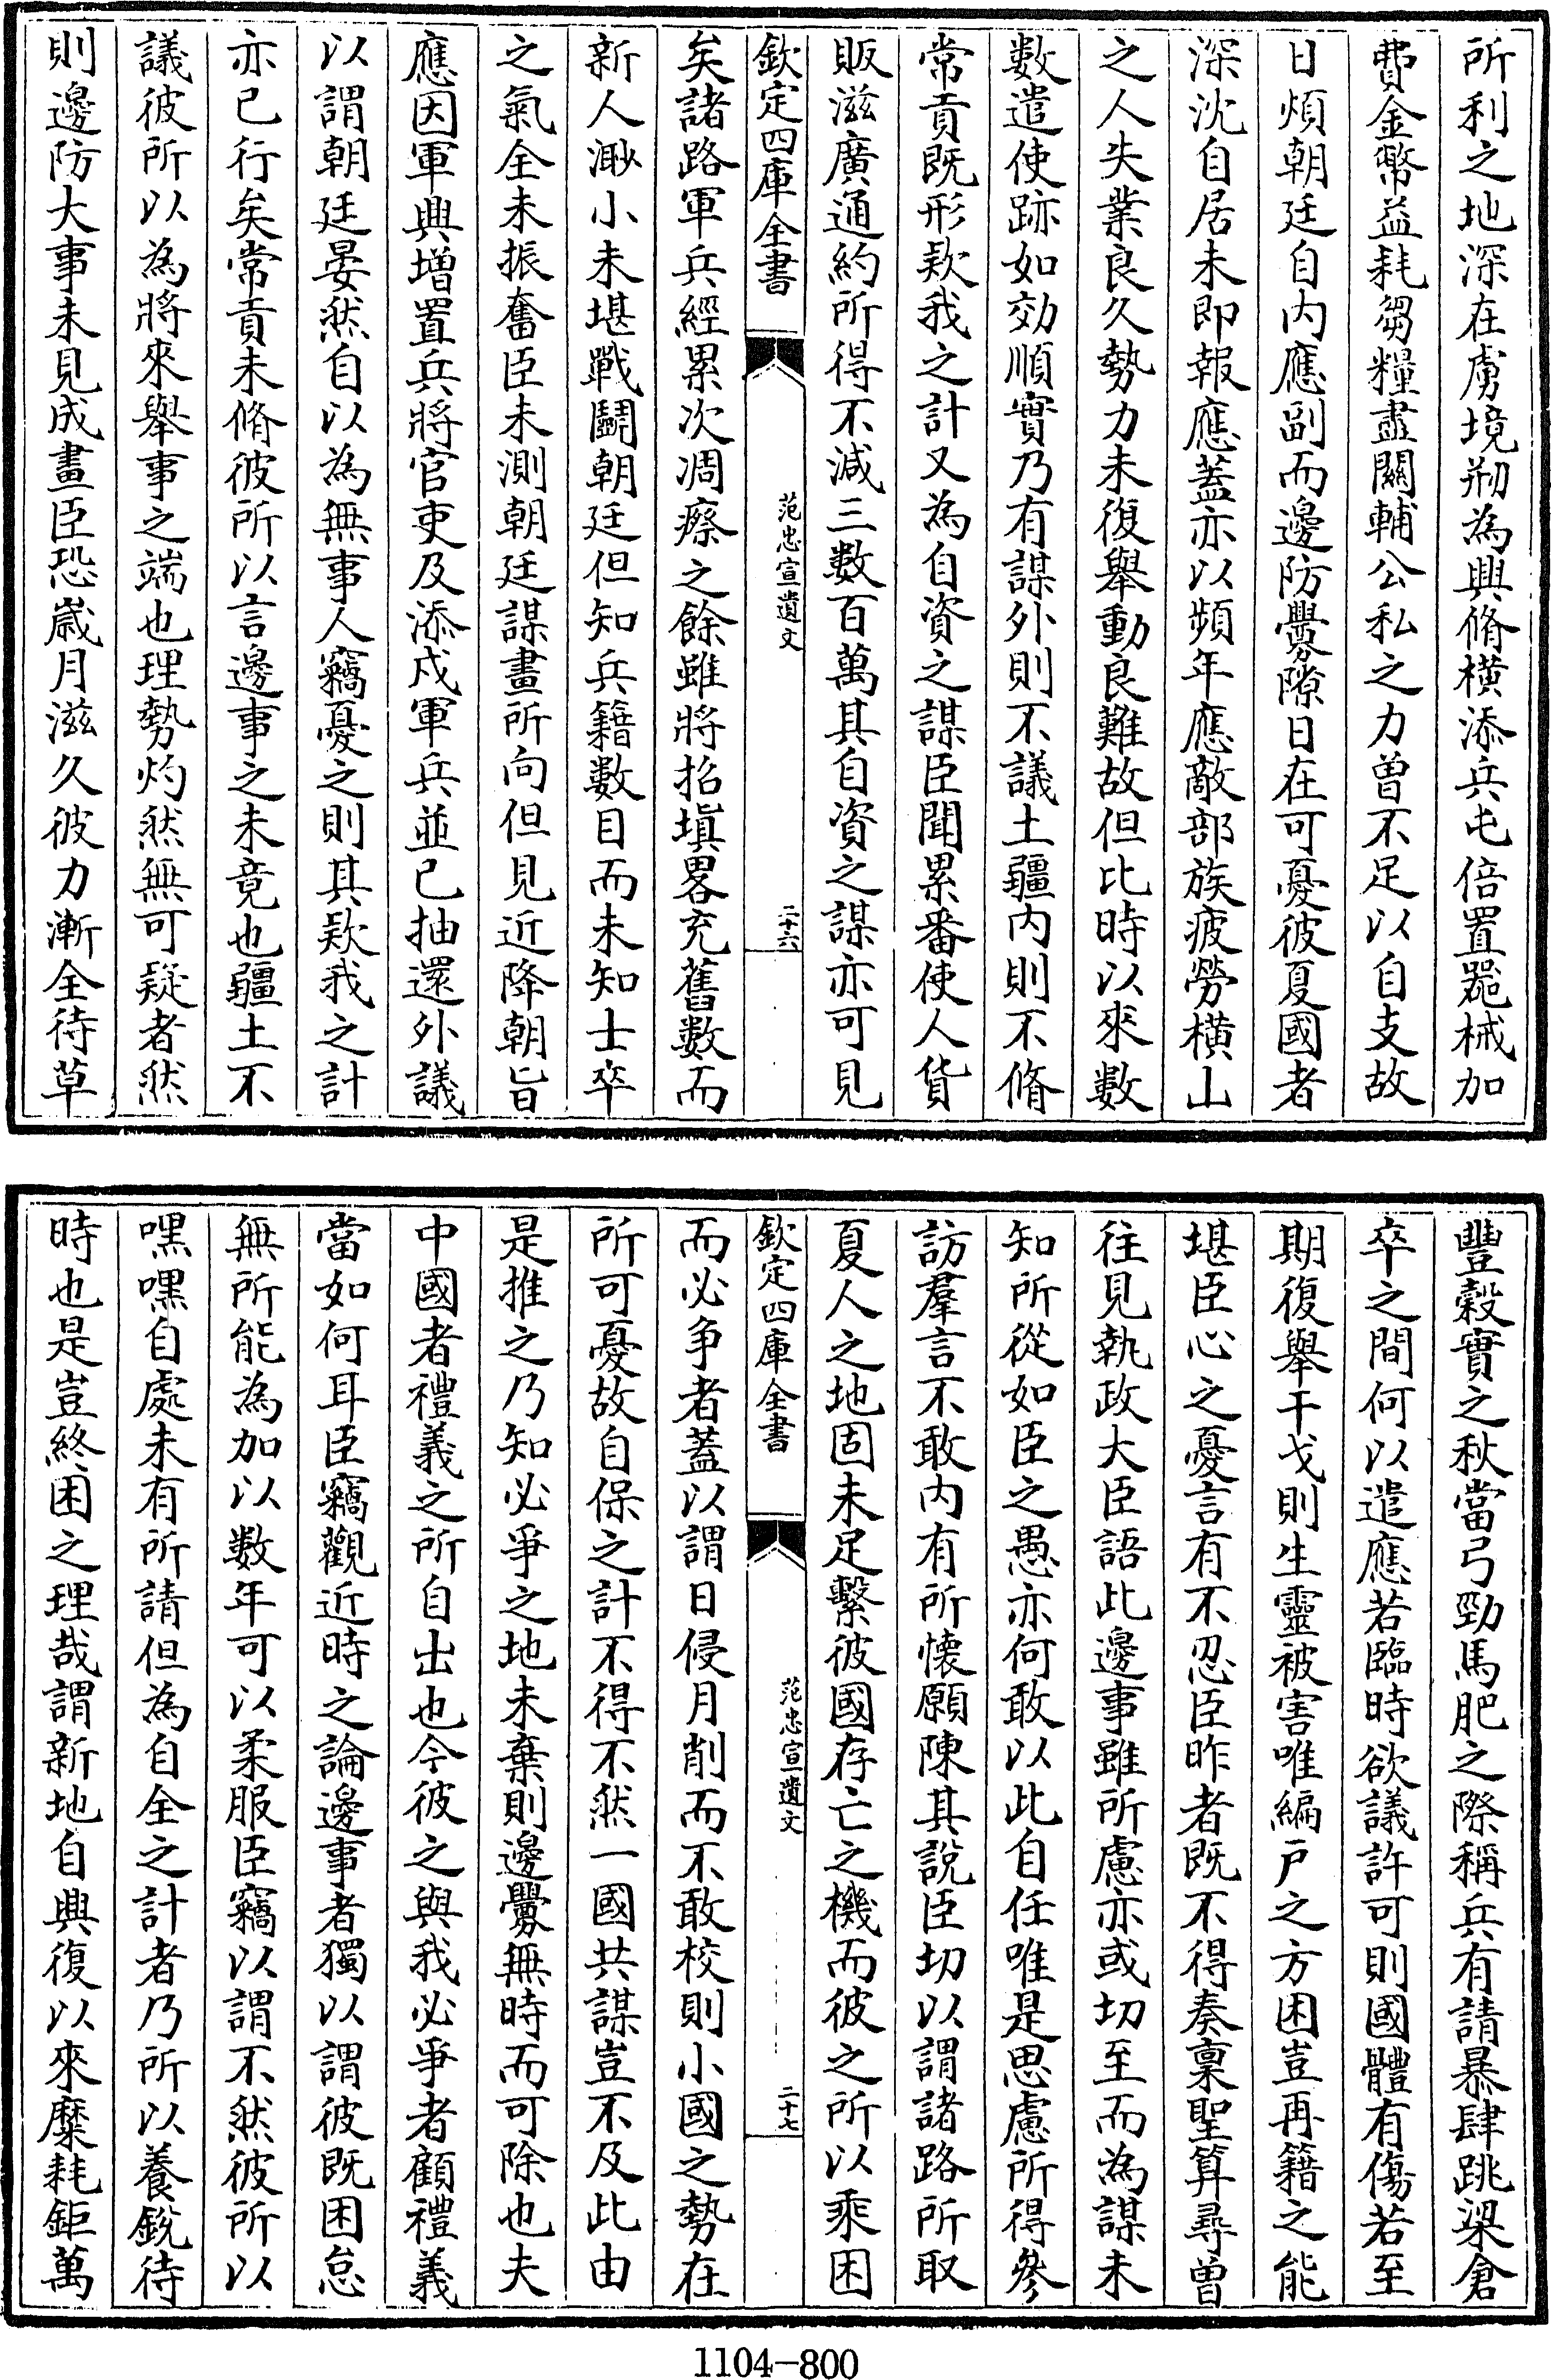 所利之地深在虜境剏為興脩橫添兵屯倍置器械加
費金幣益耗芻糧盡關輔公私之力曽不足以自支故
日煩朝廷自内應副而邊防釁隙日在可憂彼夏國者
深沈自居未即報應蓋亦以頻年應敵部族疲勞橫山
之人失業良久勢力未復舉動良難故但比時以來數
數遣使跡如効順實乃有謀外則不議土疆内則不脩
常貢既形欵我之計又為自資之謀臣聞累番使人貨
販滋廣通約所得不減三數百萬其自資之謀亦可見
欽定四庫全書
范忠宣遺文
二十六
矣諸路軍兵經累次凋瘵之餘雖將招塡畧充舊數而
新人渺小未堪戰鬭朝廷但知兵籍數目而未知士卒
之氣全未振奮臣未測朝廷謀畫所向但見近降朝旨
應因軍興增置兵將官吏及添戍軍兵並已抽還外議
以謂朝廷晏然自以為無事人竊憂之則其欵我之計
亦已行矣常貢未脩彼所以言邊事之未竟也疆土不
議彼所以為將來舉事之端也理勢灼然無可疑者然
則邊防大事未見成畫臣恐歲月滋久彼力漸全待草
豐穀實之秋當弓勁馬肥之際稱兵有請暴肆跳梁倉
卒之間何以遣應若臨時欲議許可則國體有傷若至
期復舉干戈則生靈被害唯編户之方困豈再籍之能
堪臣心之憂言有不忍臣昨者既不得奏稟聖算尋曽
往見執政大臣語此邊事雖所慮亦或切至而為謀未
知所從如臣之愚亦何敢以此自任唯是思慮所得參
訪羣言不敢内有所懐願陳其說臣切以謂諸路所取
夏人之地固未足繫彼國存亡之機而彼之所以乘困
欽定四庫全書
范忠宣遺文
二十七
而必争者蓋以謂日侵月削而不敢校則小國之勢在
所可憂故自保之計不得不然一國共謀豈不及此由
是推之乃知必爭之地未棄則邊釁無時而可除也夫
中國者禮義之所自出也今彼之與我必爭者顧禮義
當如何耳臣竊觀近時之論邊事者獨以謂彼既困怠
無所能為加以數年可以柔服臣竊以謂不然彼所以
嘿嘿自處未有所請但為自全之計者乃所以養銳待
時也是豈終困之理哉謂新地自興復以來糜耗鉅萬
1104-800